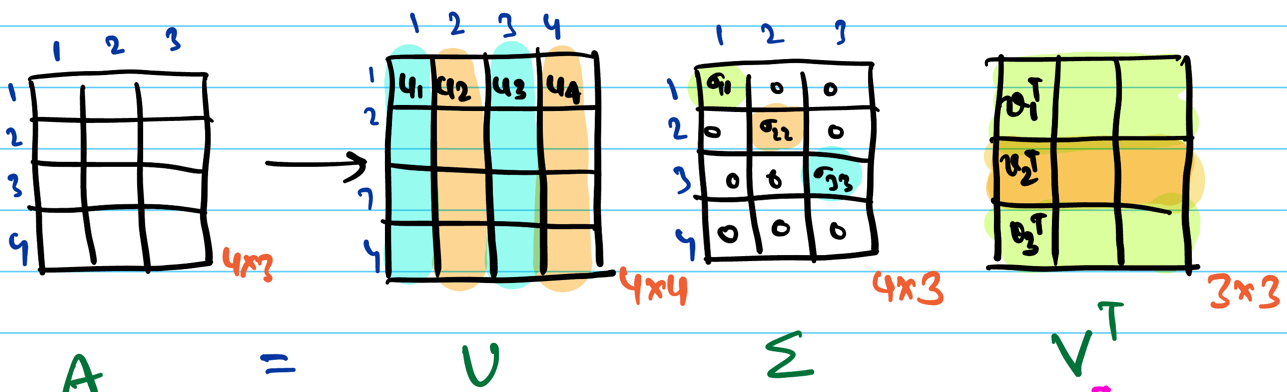 1 2 3
1
2
3
4
4×3
1 2 3 4
1 u1 u2 u3 u4
2
7
4
4×4
1 2 3
1 σ11 0 0
2 0 σ22 0
3 0 0 σ33
4 0 0 0
4×3
v1^T
v2^T
v3^T
3×3
A = U Σ V^T